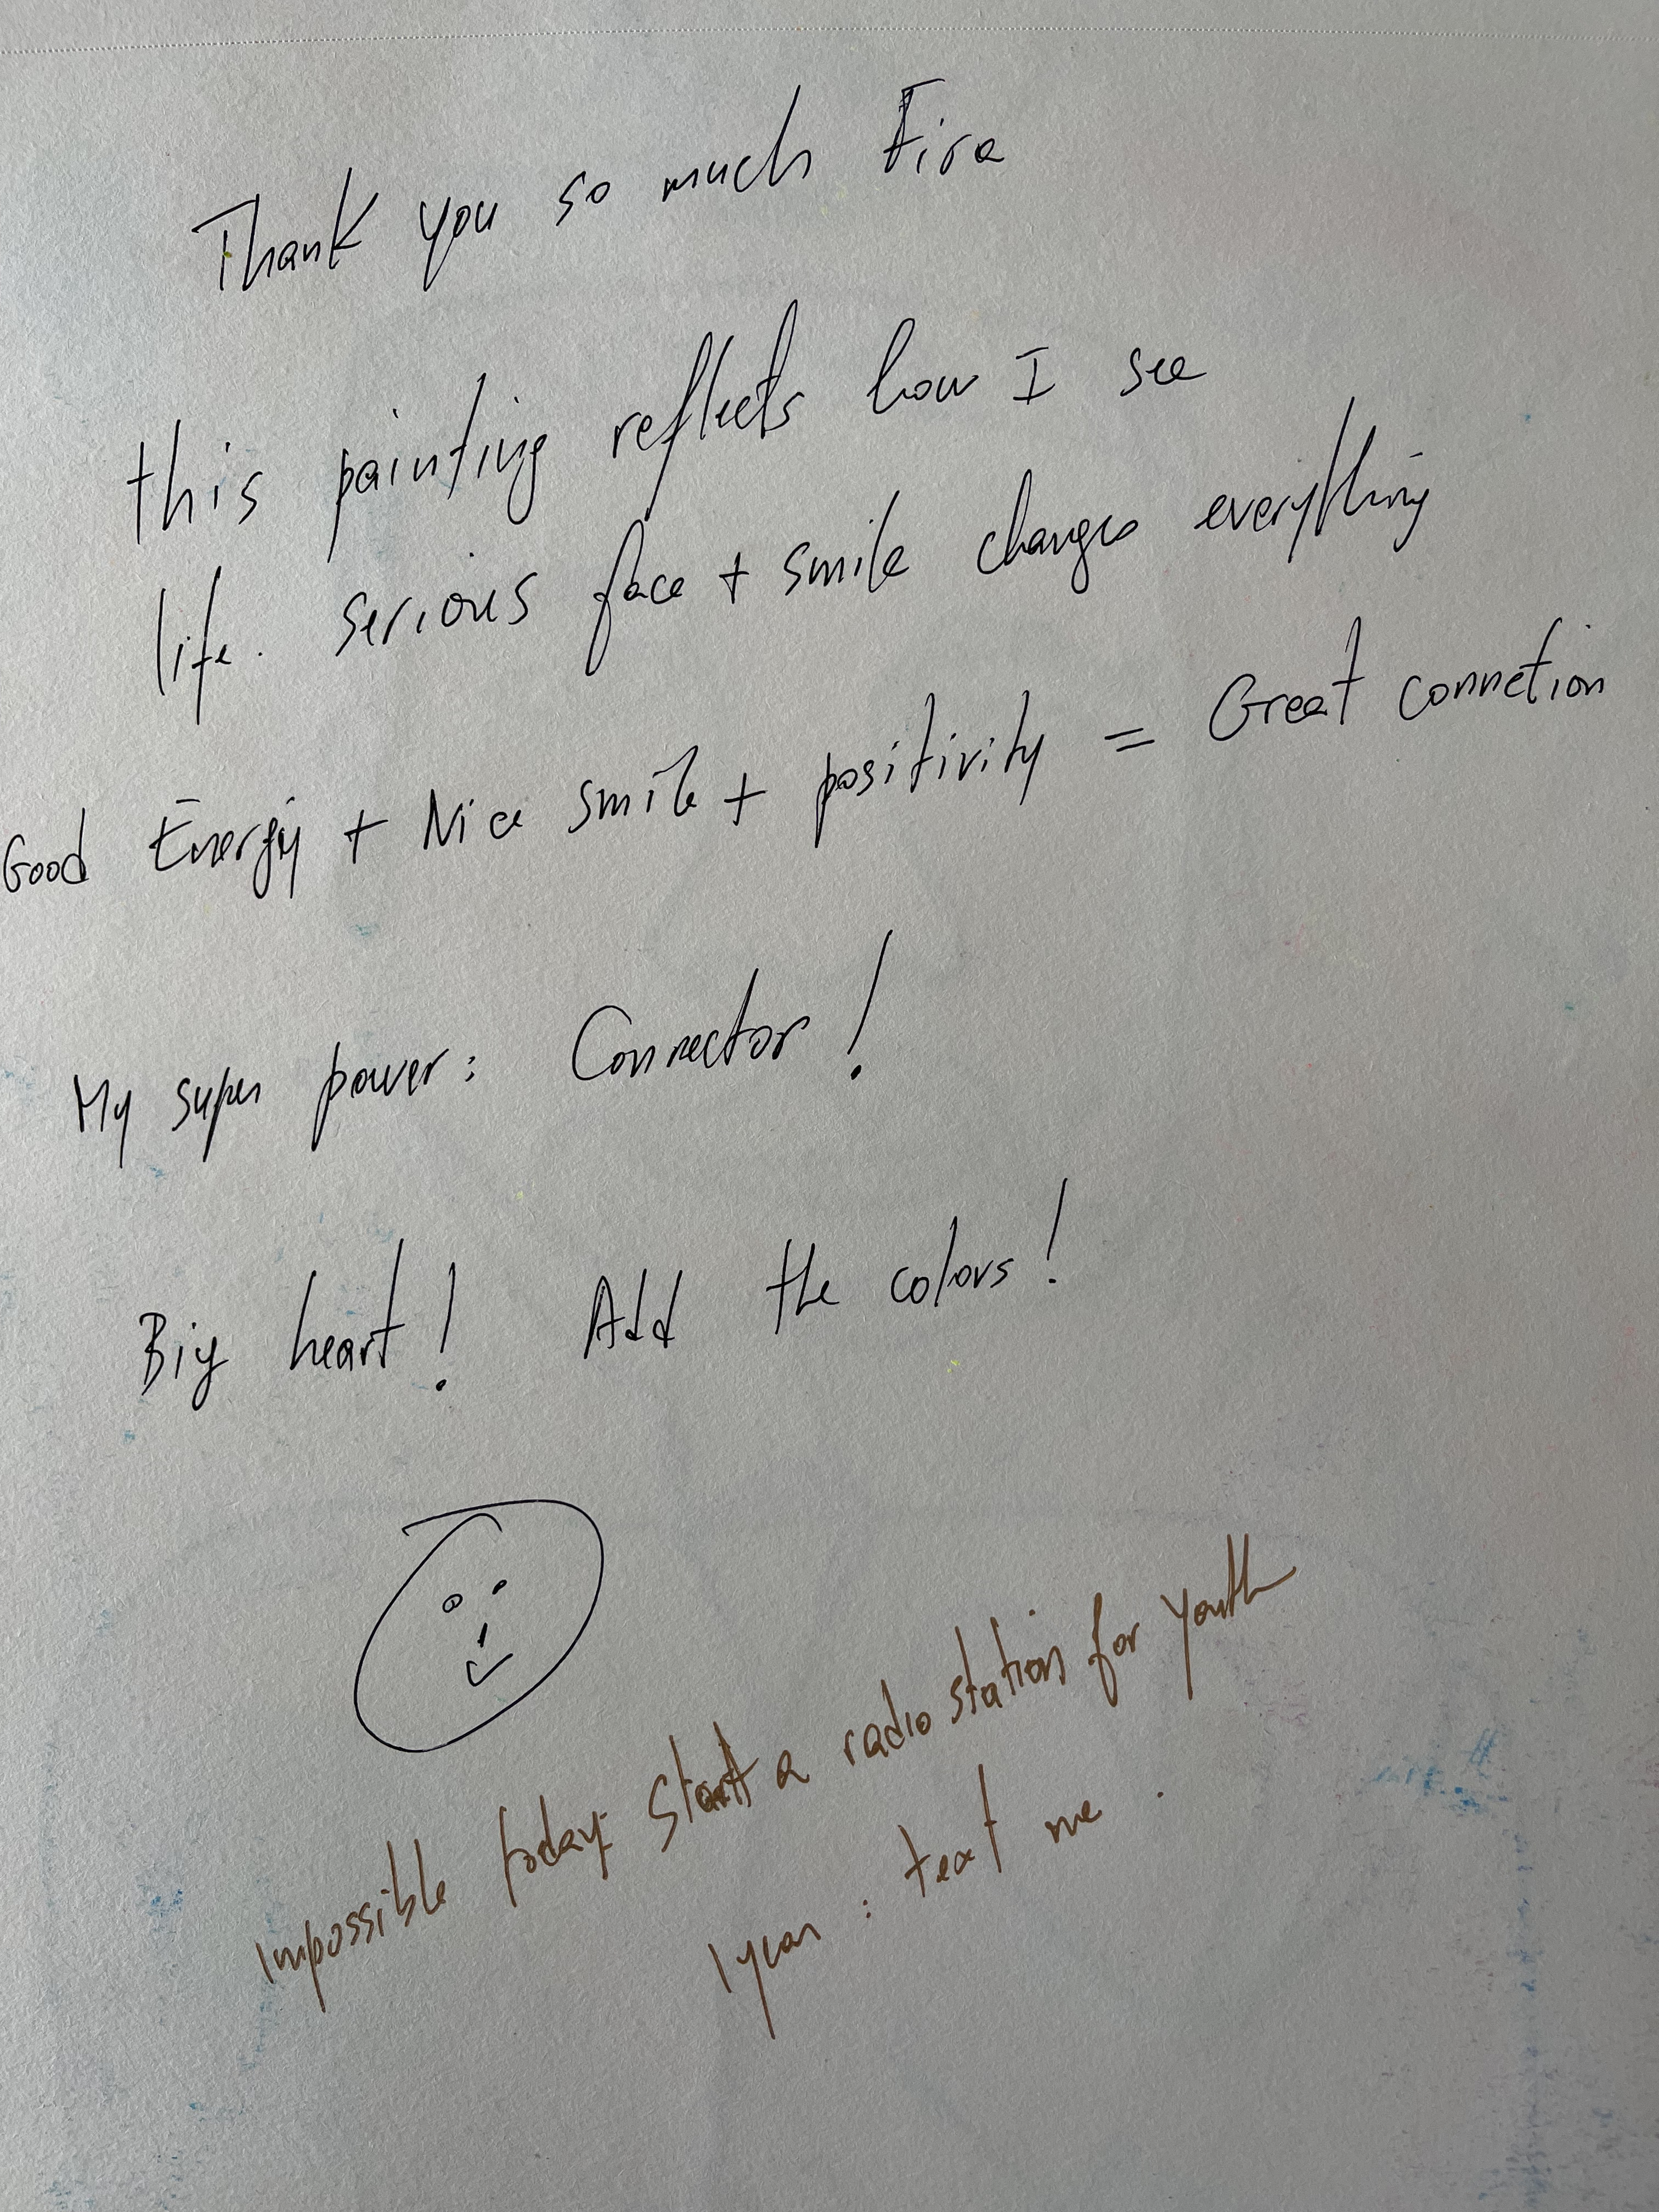 Thank you so much Fira
this painting reflects how I see
life. serious face + smile changes everything
Good Energy + Nice smile + positivity = Great connetion
My super power: Connector!
Big heart! Add the colors!
Impossible today: Start a radio station for youth
1 year: text me.